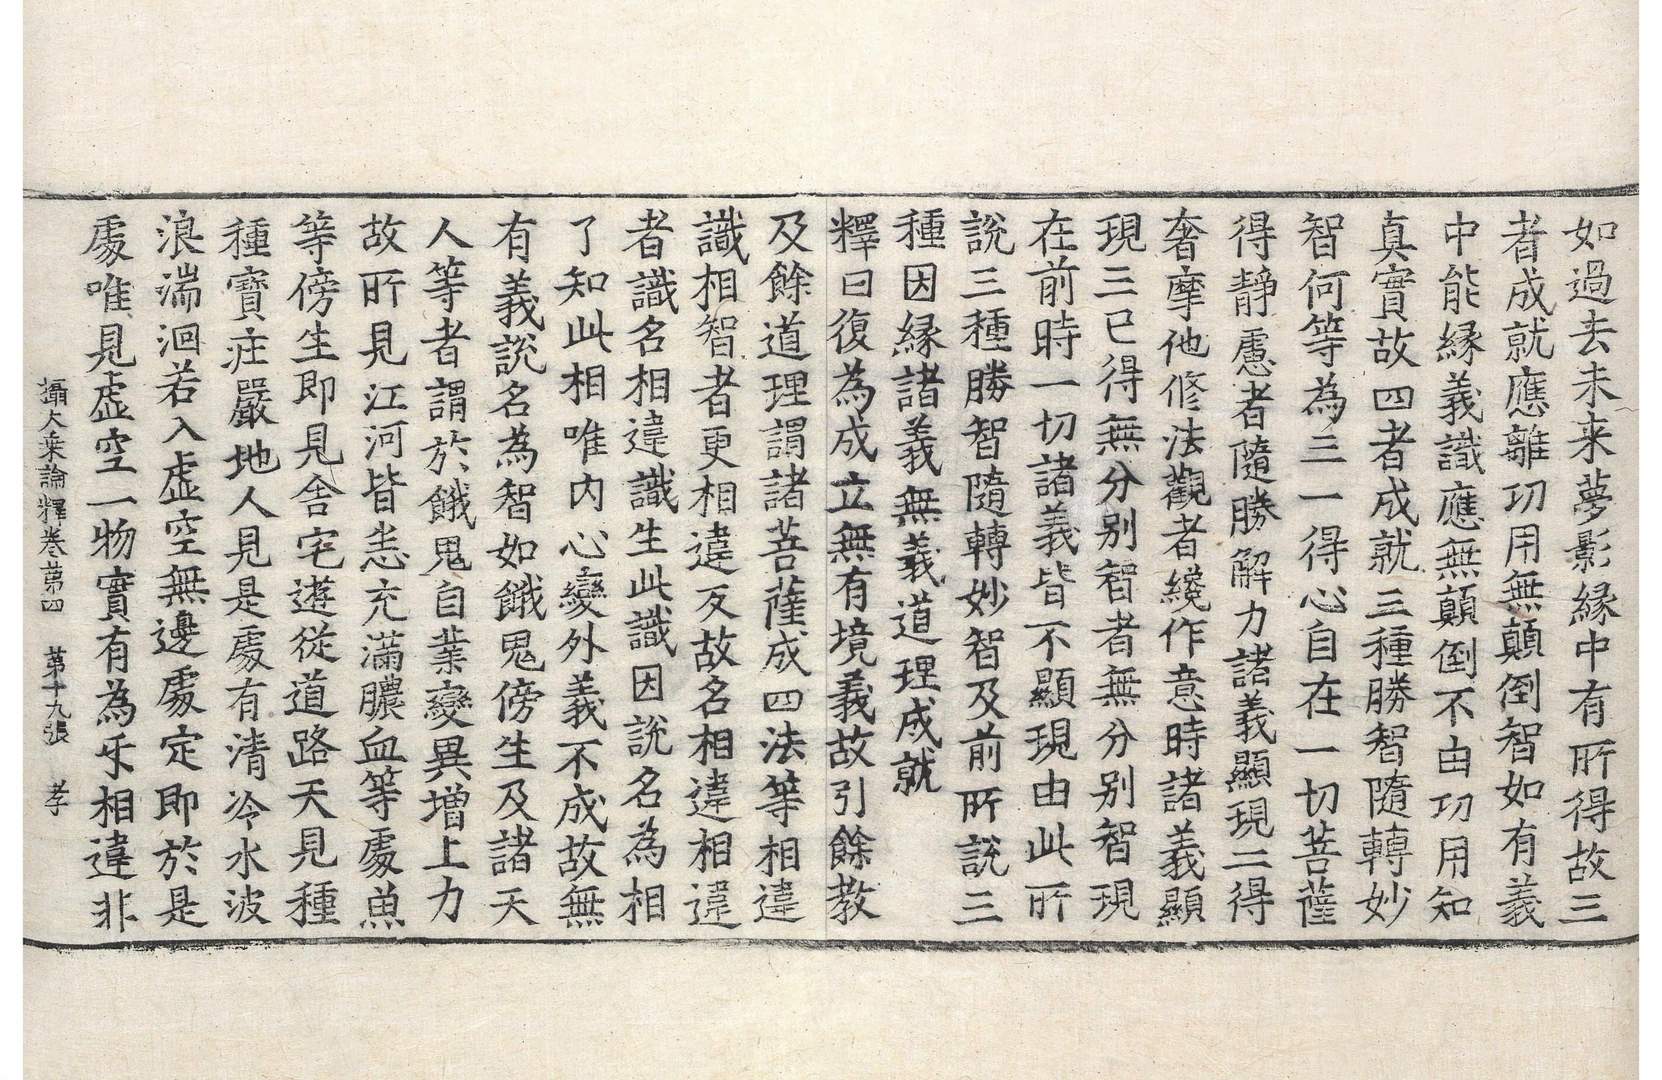 如過去未来夢影縁中有所得故三
者成就應離功用無顛倒智如有義
中能縁義識應無顛倒不由功用知
真實故四者成就三種勝智隨轉妙
智何等為三一得心自在一切菩薩
得靜慮者隨勝解力諸義顯現二得
奢摩他修法觀者纔作意時諸義顯
現三已得無分別智者無分別智現
在前時一切諸義皆不顯現由此所
說三種勝智隨轉妙智及前所說三
種因縁諸義無義道理成就
釋曰復為成立無有境義故引餘教
及餘道理謂諸菩薩成四法等相違
識相智者更相違反故名相違相違
者識名相違識生此識因說名為相
了知此相唯内心變外義不成故無
有義說名為智如餓鬼傍生及諸天
人等者謂於餓鬼自業變異增上力
故所見江河皆悉充滿膿血等處魚
等傍生即見舍宅遊從道路天見種
種寶莊嚴地人見是處有清冷水波
浪湍洄若入虛空無邊處定即於是
處唯見虛空一物實有為互相違非
攝大乘論釋卷第四　第十九張　孝